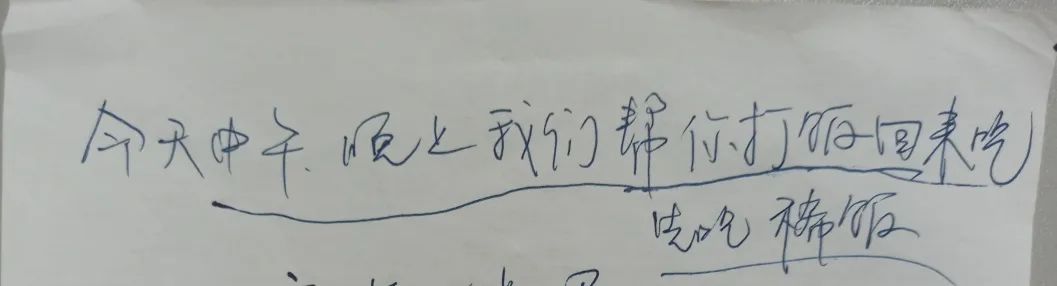 今天中午、晚上我们帮你打饭回来吃
先吃稀饭